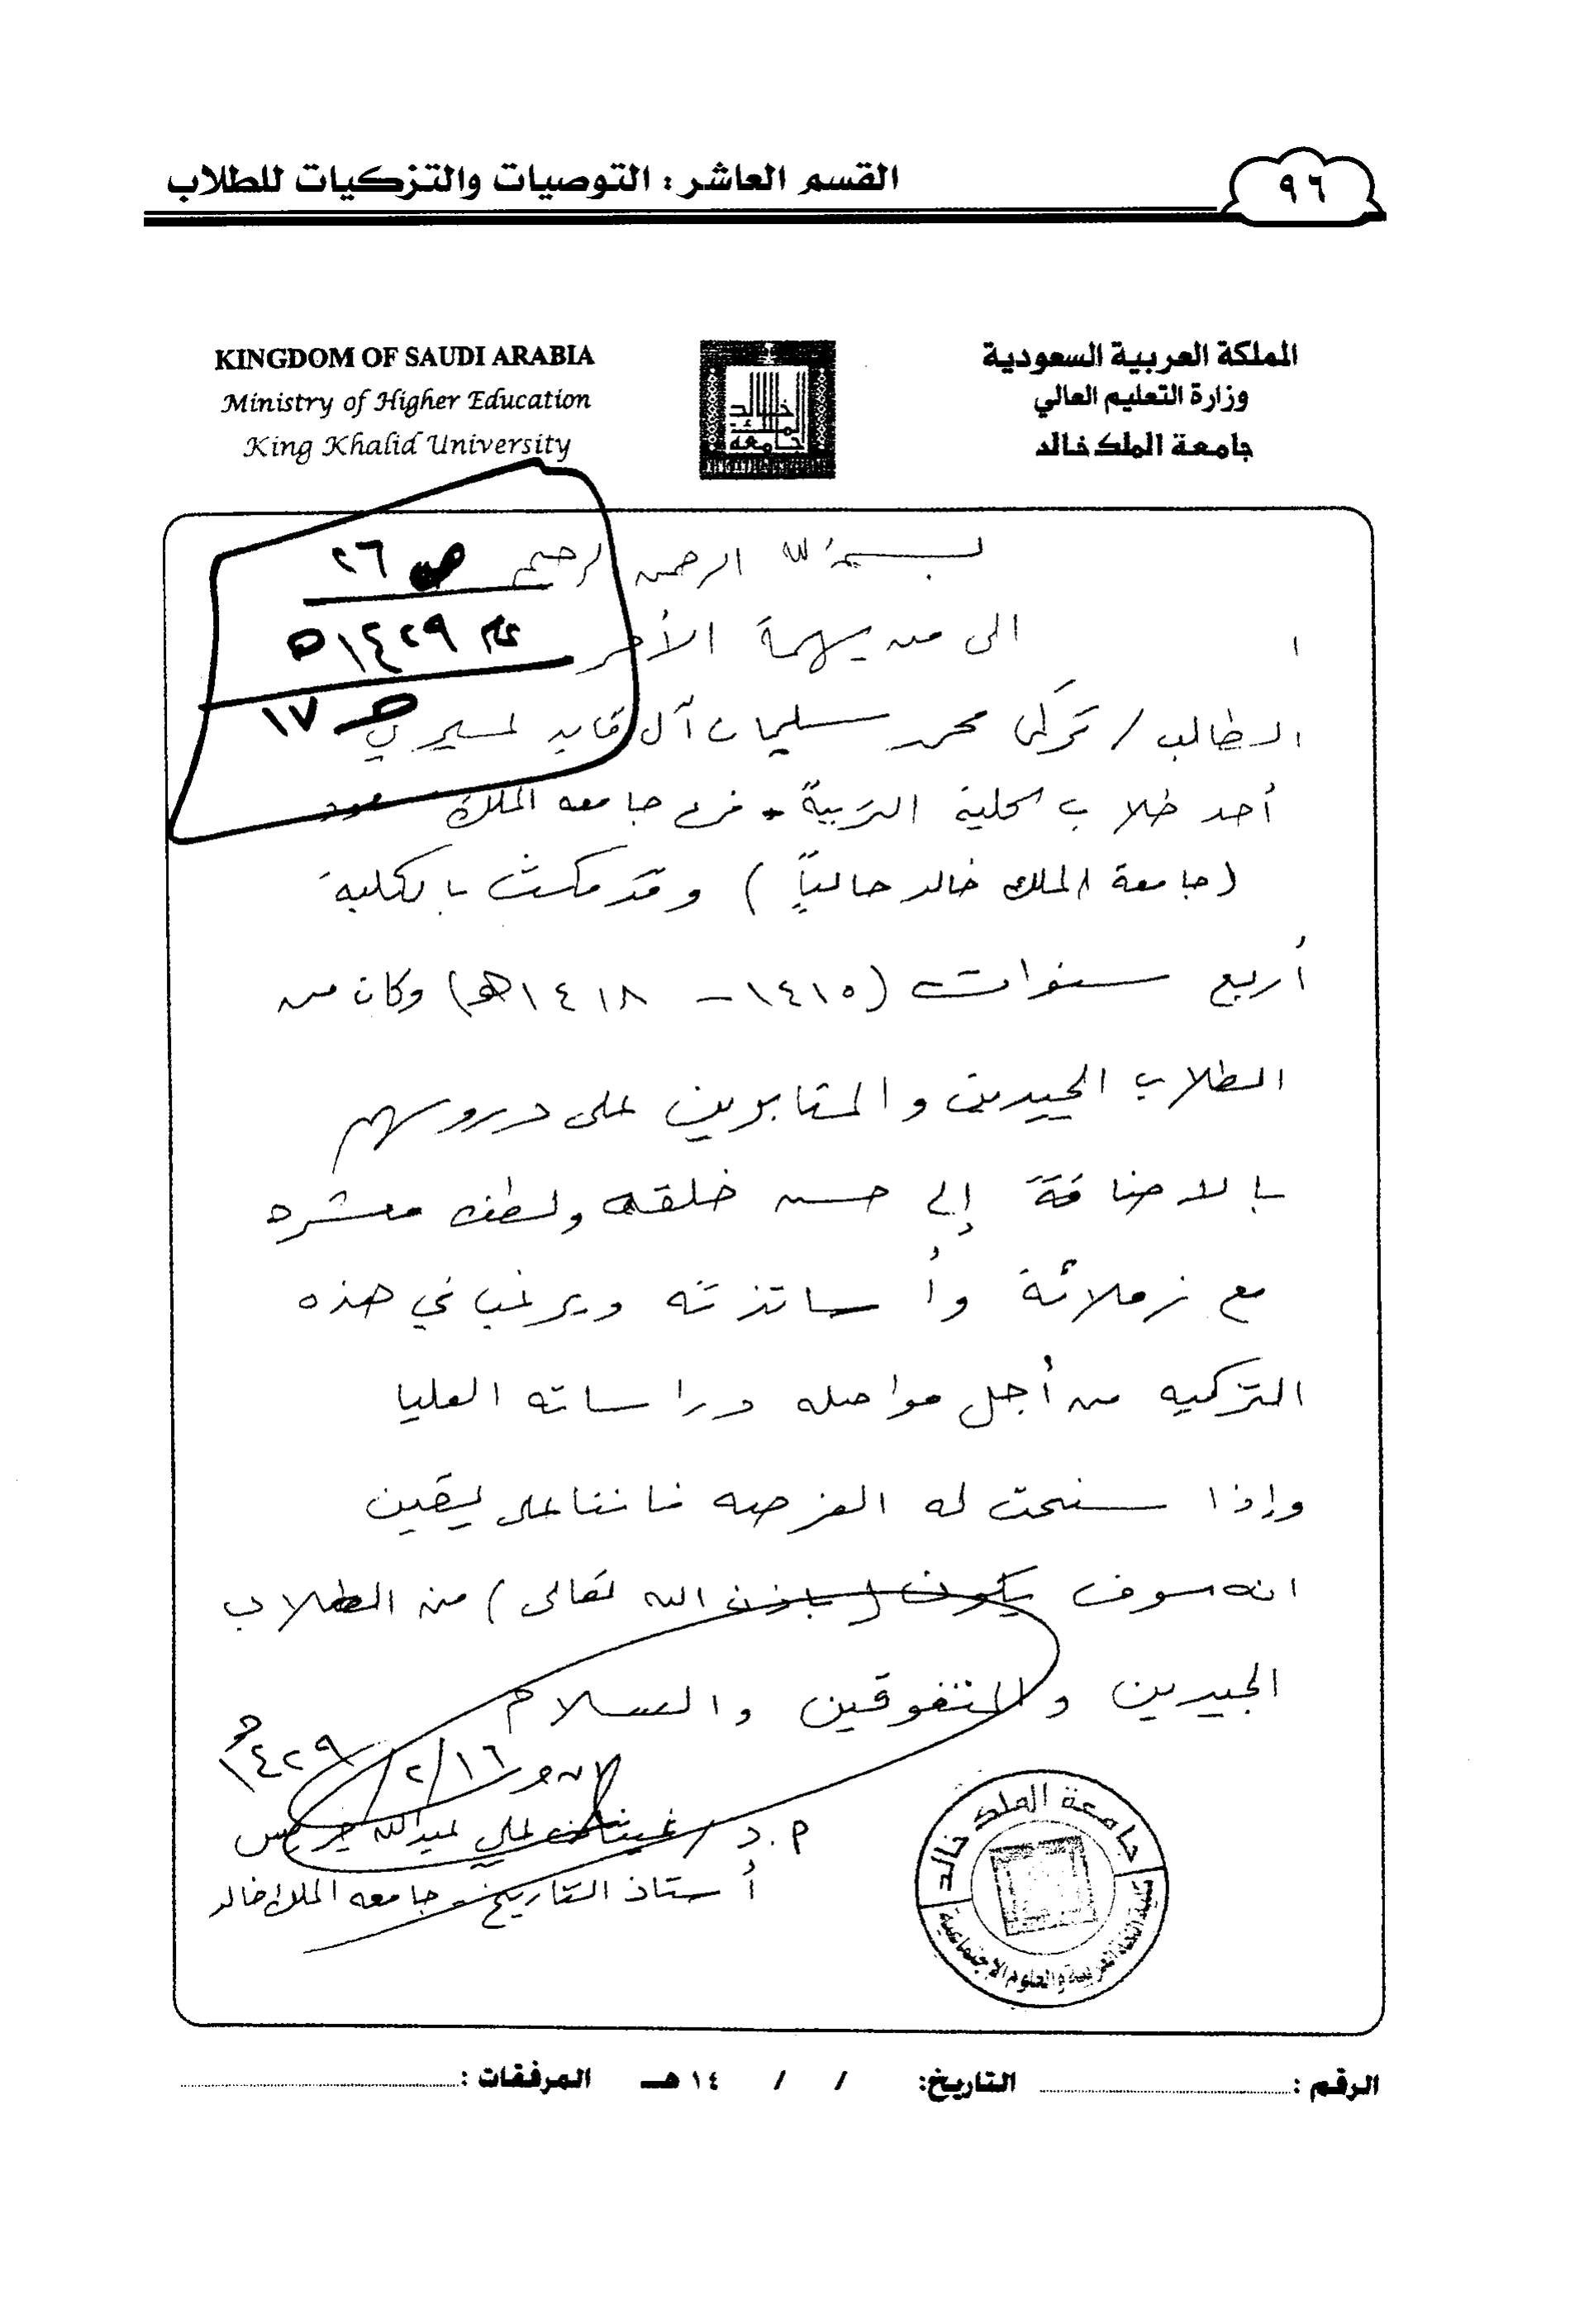 القسم العاشر : التوصيات والتزكيات للطلاب
٩٦
KINGDOM OF SAUDI ARABIA
Ministry of Higher Education
King Khalid University
المملكة العربية السعودية
وزارة التعليم العالي
جامعة الملك خالد
جامعة الملك خالد
ص ٢٦
عام ١٤٢٩ه
ص ١٧
بسم الله الرحمن الرحيم
الى من يهمة الأمر
الطالب / تركي محمد سليمان آل قايد عسيري
أحد طلاب كلية التربية - فرع جامعه الملك سعود
(جامعة الملك خالد حالياً) وقد مكث بالكلية
أربع سنوات (١٤١٥ – ١٤١٨هـ) وكان من
الطلاب الجيدين والمثابرين على دروسهم
بالاضافة إلى حسن خلقه ولطف معشره
مع زملائة وأساتذته ويرغب في هذه
التزكيه من أجل مواصله دراساته العليا
وإذا سنحت له الفرصه فاننا على يقين
انه سوف يكون (بإذن الله تعالى) من الطلاب
الجيدين والمتفوقين والسلام
١٦/٢/١٤٢٩ه
أ.د/ غيثان علي عبدالله جريس
أستاذ التاريخ - جامعه الملك خالد
جامعة الملك خالد
كلية اللغة العربية والعلوم الإجتماعية
الرقم : التاريخ: / / ١٤هـ المرفقات :